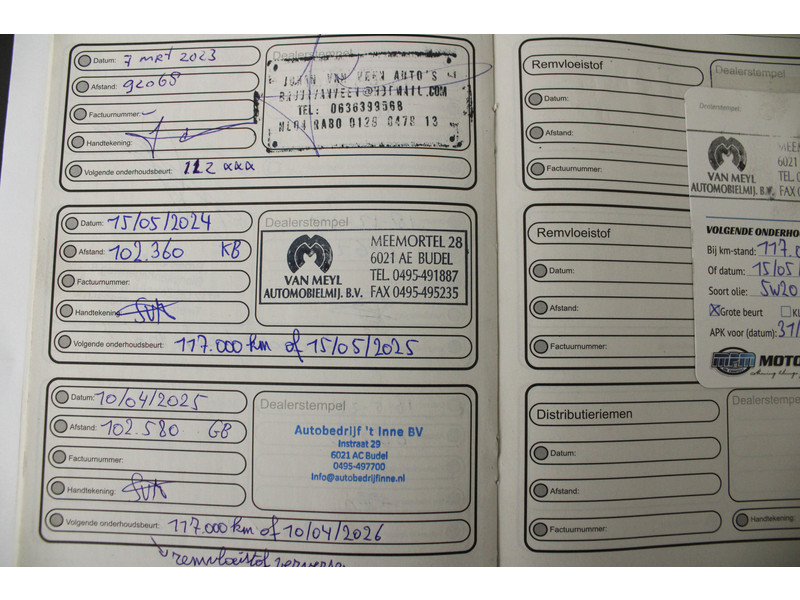 Datum: 7 mrt 2023
Afstand: 92068
Factuurnummer:
Handtekening:
Dealerstempel
JOHAN VAN VEEN AUTO'S
TEL: 0636399568
NL04 RABO 0128 0478 13
Volgende onderhoudsbeurt: 112 xxx
Datum: 15/05/2024
Afstand: 102.360 KB
Factuurnummer:
Handtekening:
Dealerstempel
VAN MEYL
AUTOMOBIELMIJ. B.V.
MEEMORTEL 28
6021 AE BUDEL
TEL. 0495-491887
FAX 0495-495235
Volgende onderhoudsbeurt: 117.000 km of 15/05/2025
Datum: 10/04/2025
Afstand: 102.580 GB
Factuurnummer:
Handtekening:
Dealerstempel
Autobedrijf 't Inne BV
Instraat 29
6021 AC Budel
0495-497700
Info@autobedrijfinne.nl
Volgende onderhoudsbeurt: 117.000 km of 10/04/2026
remvloeistof
Remvloeistof
Datum:
Afstand:
Factuurnummer:
Dealerstempel
Remvloeistof
Datum:
Afstand:
Factuurnummer:
Distributieriemen
Datum:
Afstand:
Factuurnummer:
Dealerstempel
Handtekening:
Dealerstempel:
VAN MEYL
AUTOMOBIELMIJ. B.V.
6021
TEL.
FAX
VOLGENDE
Bij km-stand: 117.
Of datum: 15/05/
Soort olie: 5W20
Grote beurt
APK voor (datum): 31/
MPM MOTO